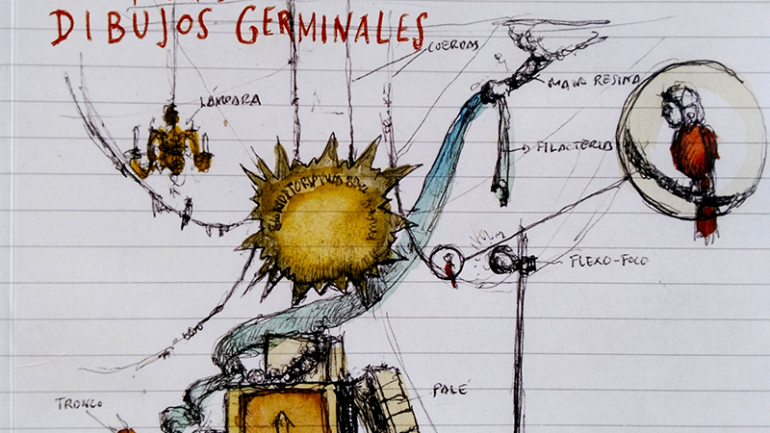 DIBUJOS GERMINALES
CUERDAS
LÁMPARA
MANO RESINA
FILACTERIA
FLEXO-FOCO
PALÉ
TRONCO